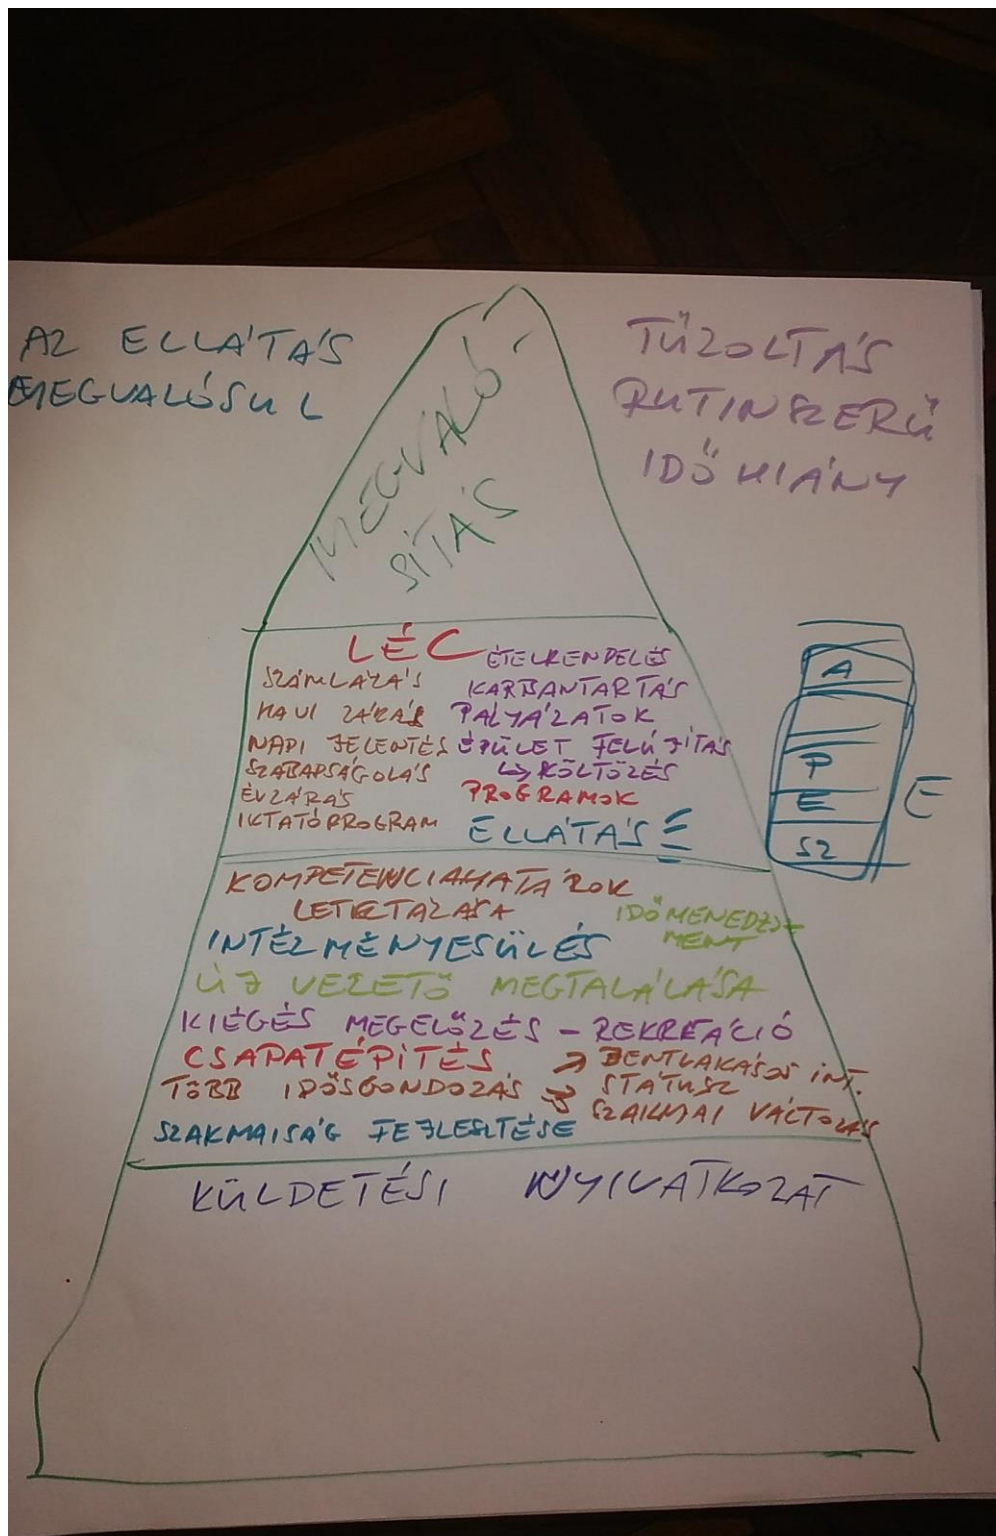 AZ ELLÁTÁS
MEGVALÓSUL
TŰZOLTÁS
RUTINSZERŰ
IDŐHIÁNY
MEGVALÓ
SÍTÁS
LÉC
SZÁMLÁZÁS
HAVI ZÁRÁS
NAPI JELENTÉS
SZABADSÁGOLÁS
ÉVZÁRÁS
IKTATÓPROGRAM
ÉTELRENDELÉS
KARBANTARTÁS
PÁLYÁZATOK
ÉPÜLET FELÚJÍTÁS
↳ KÖLTÖZÉS
PROGRAMOK
ELLÁTÁS
A
P
E
SZ
E
KOMPETENCIAHATÁROK
IDŐMENEDZS
MENT
INTÉZMÉNYESÜLÉS
ÚJ VEZETŐ MEGTALÁLÁSA
KIÉGÉS MEGELŐZÉS - REKREÁCIÓ
CSAPATÉPÍTÉS
TÖBB IDŐSGONDOZÁS
→ BENTLAKÁSOS INT.
STÁTUSZ
SZAKMAI VÁLTOZÁS
SZAKMAISÁG FEJLESZTÉSE
KÜLDETÉSI NYILATKOZAT